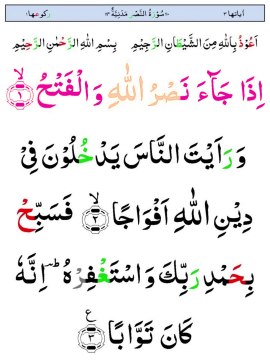 اٰیاتها ۳ ۱۱۰ سُوْرَةُ النَّصْرِ مَدَنِیَّةٌ ۱۱۴ رکوعها ۱
اَعُوْذُ بِاللّٰهِ مِنَ الشَّیْطٰانِ الرَّجِیْمِ بِسْمِ اللّٰهِ الرَّحْمٰنِ الرَّحِیْمِ
اِذَا جَآءَ نَصْرُ اللّٰهِ وَالْفَتْحُ ۙ‏﴿۱﴾
وَرَاَیْتَ النَّاسَ یَدْخُلُوْنَ فِیْ
دِیْنِ اللّٰهِ اَفْوَاجًا ۙ‏﴿۲﴾ فَسَبِّحْ
بِحَمْدِ رَبِّكَ وَاسْتَغْفِرْهُ ؕ اِنَّهٗ
كَانَ تَوَّابًا ﴿۳﴾ ع